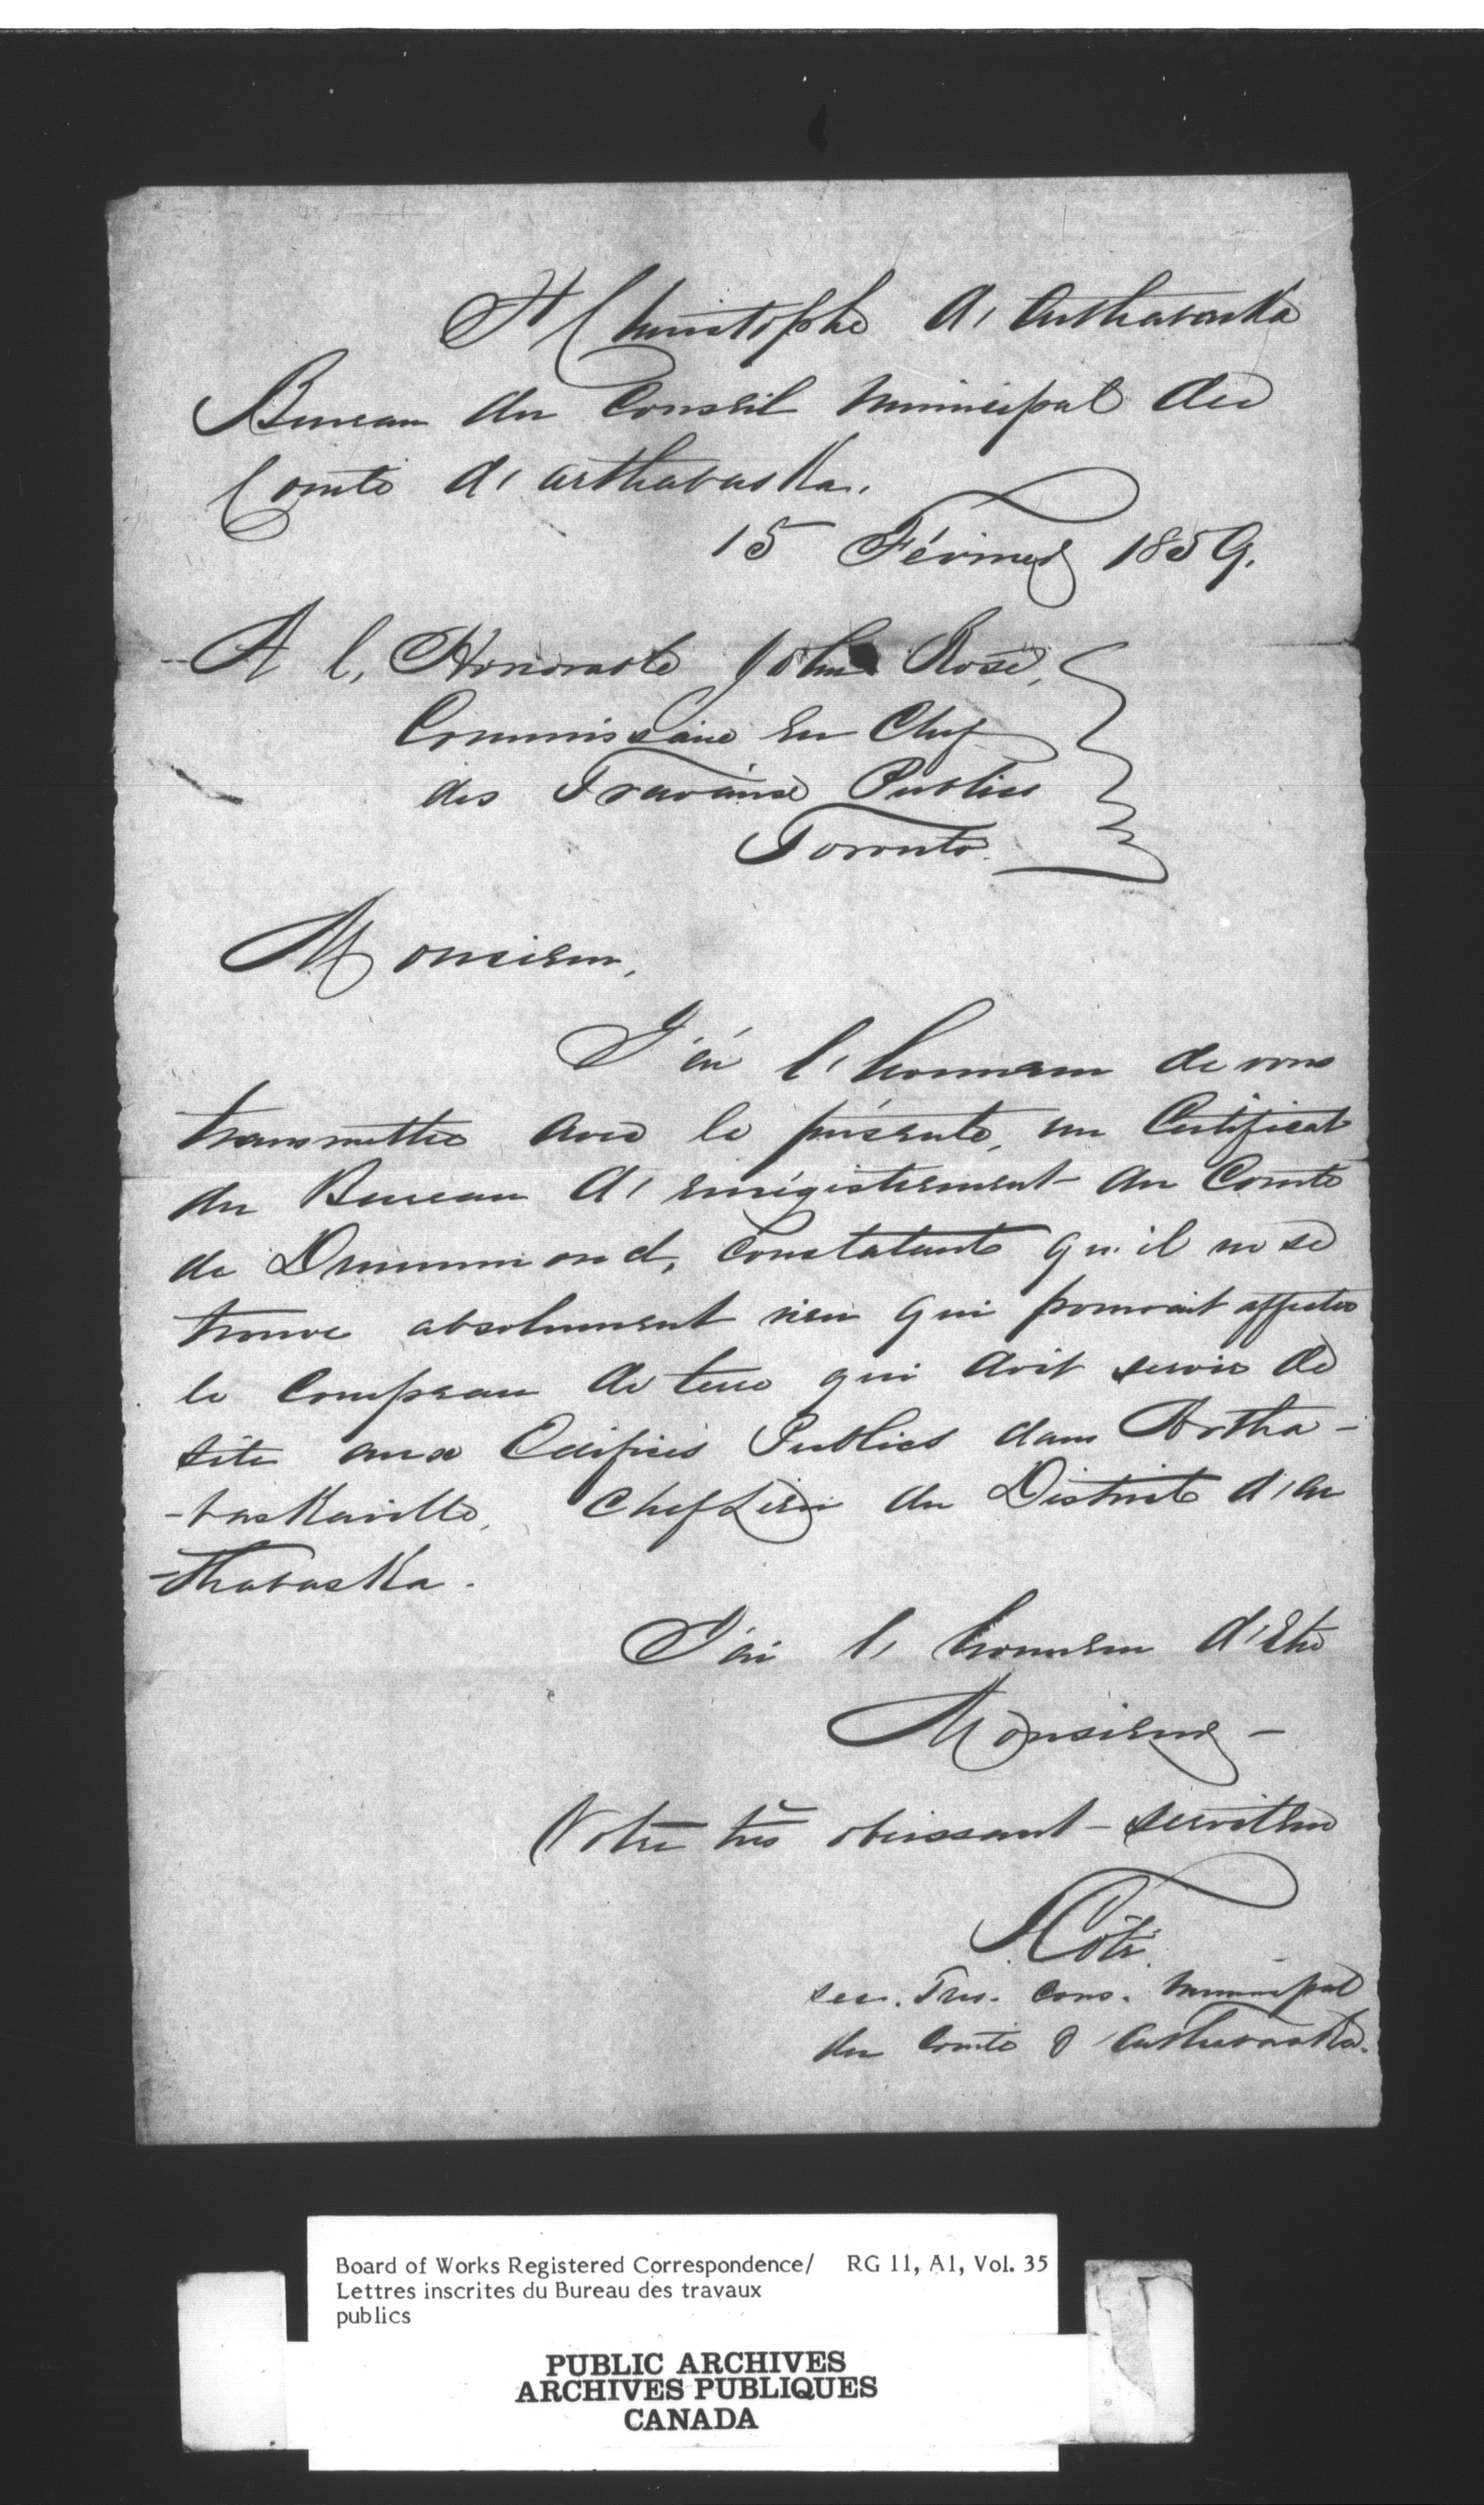 St Christophe d'Arthabaska
Bureau du Conseil Municipal du
Comté d'arthabaska.
15 Février 1859.
A l'Honorable John Rose,
Commissaire en Chef
des Travaux Publics
Toronto.
Monsieur,
J'ai l'honneur de vous
transmettre avec la présente, un Certificat
du Bureau d'enrégistrement du Comté
de Drummond, constatant qu'il ne se
trouve absolument rien qui pourrait affecter
le compeau de terre qui doit servir de
site aux Edifices Publics dans Artha-
-baskaville, Chef Lieu du District d'ar
-thabaska.
J'ai l'honneur d'Etre
Monsieur -
Votre très obeissant serviteur
Côté.
sec. Trés. Cons. Municipal
du Comté d'Arthabaska.
Board of Works Registered Correspondence/ RG 11, A1, Vol. 35
Lettres inscrites du Bureau des travaux
publics
PUBLIC ARCHIVES
ARCHIVES PUBLIQUES
CANADA